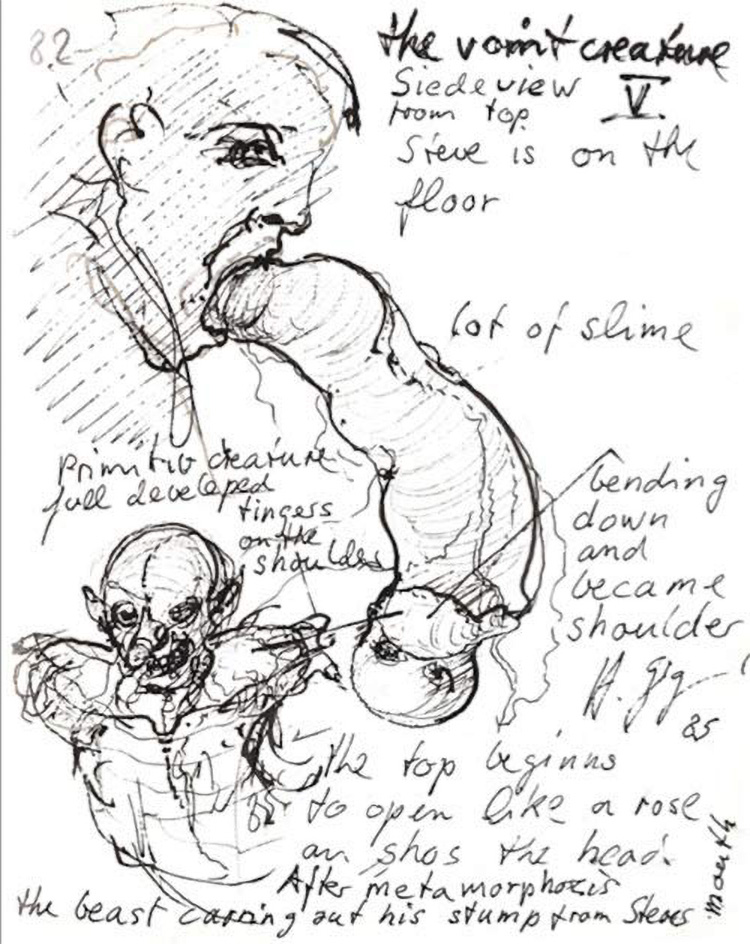 82
the vomit creature
Siedeview V.
from top
Steve is on the
floor
Lot of slime
primitiv creature
full developed
fingers
on the
shoulders
bending
down
and
became
shoulder
H. Gig
85
the top beginns
to open like a rose
an shos the head.
After metamorphosis
the beast carring out his stump from Steves
mouth